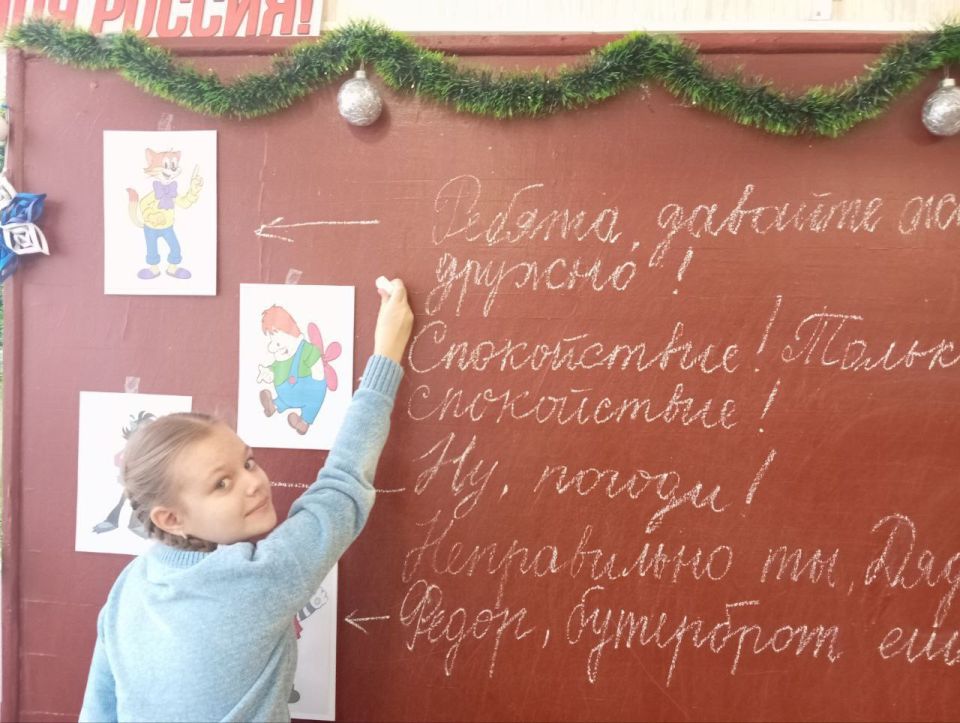 РОССИЯ!
Ребята, давайте
дружно!
Спокойствие! Тольк
спокойствие!
Ну, погоди!
Неправильно ты, Дяд
Федор, бутерброт еш